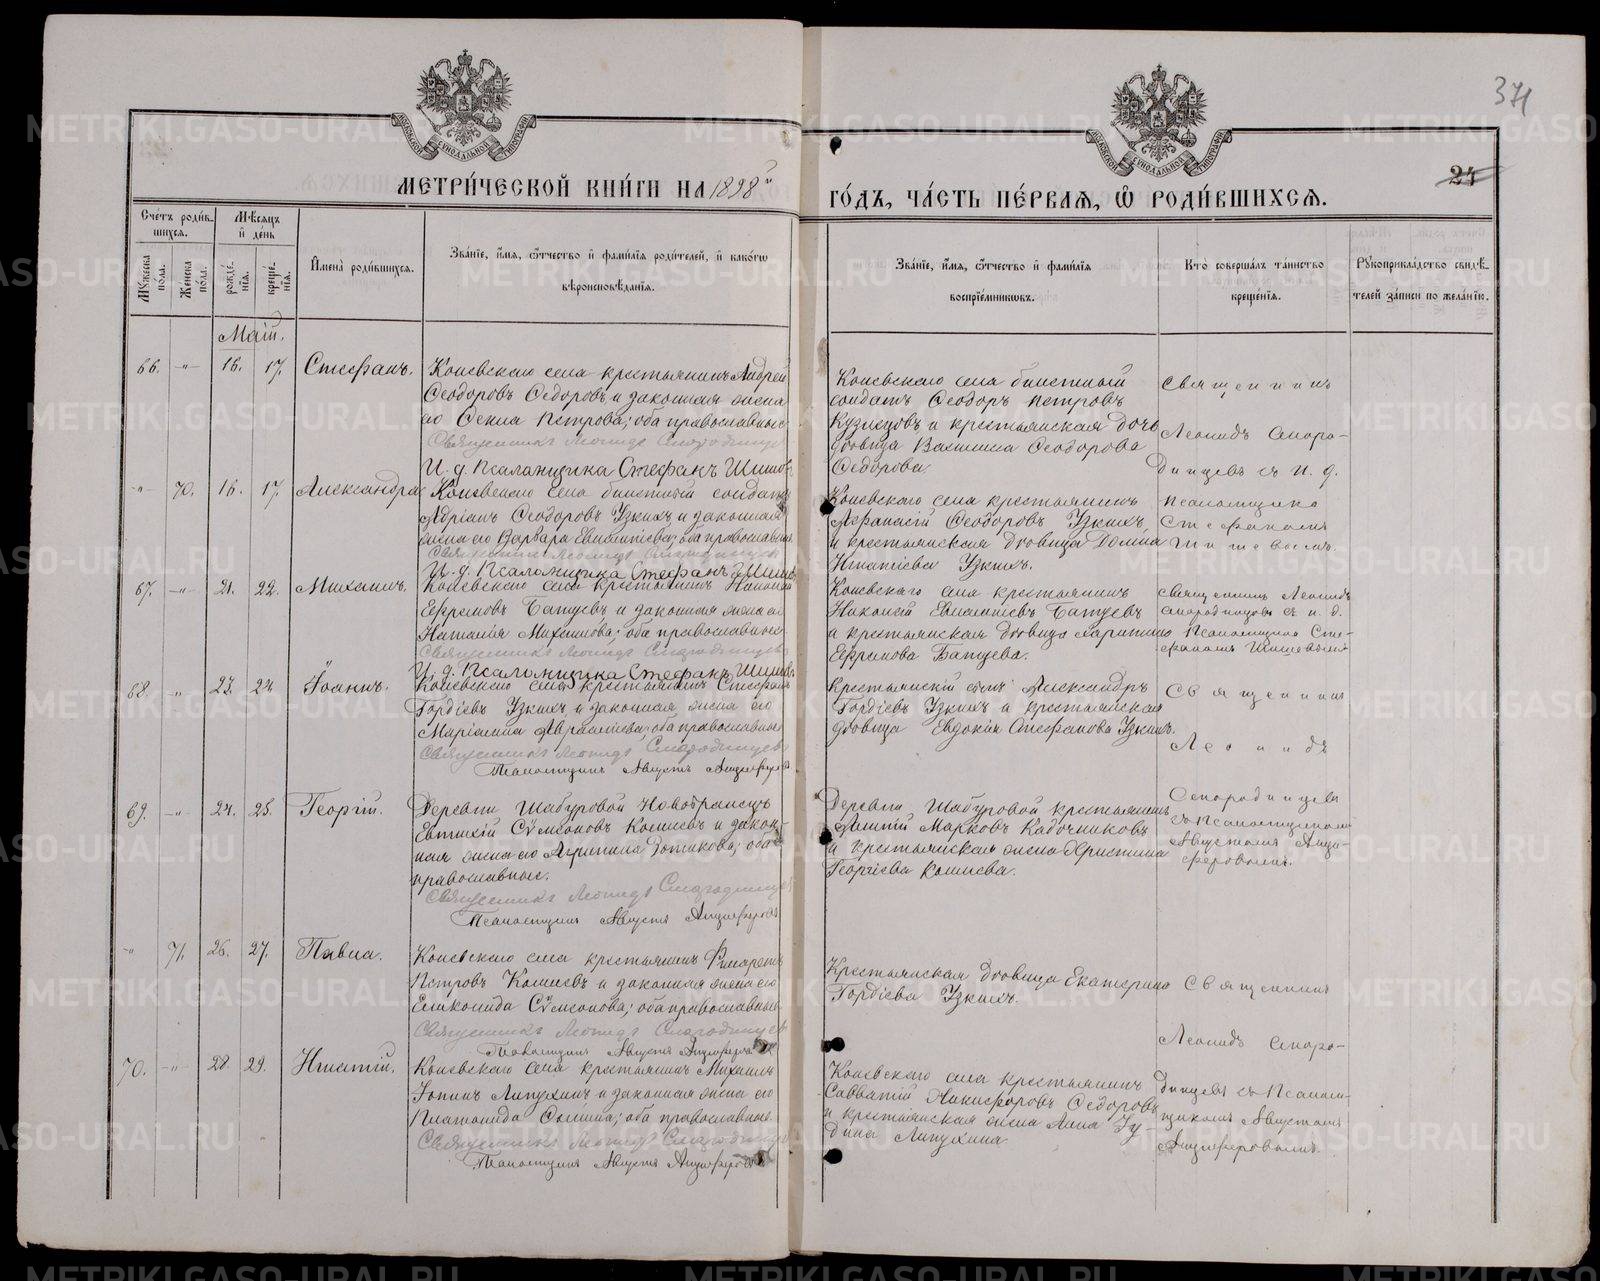 371
24
МОСКОВСКОЙ СѴНОДАЛЬНОЙ ТИПОГРАФІИ
МЕТРИ́ЧЕСКОЙ КНИ́ГИ НА 1898й
ГО́ДЪ, ЧА́СТЬ ПЕ́РВАЯ, Ѡ РОДИ́ВШИХСЯ.
Сче́тъ роди́в-
шихся.
Мѣ́сяцъ
и де́нь
Му́жеска по́ла.
Же́нска по́ла.
рожде́-
нія.
креще́-
нія.
Имена̀ роди́вшихся.
Зва́ніе, и́мя, ѻ́тчество и фами́лія роди́телей, и како́гѡ
вѣроисповѣ́данія.
Зва́ніе, и́мя, ѻ́тчество и фами́лія
воспріе́мниковъ.
Кто̀ соверша́лъ та́инство
креще́нія.
Рꙋкоприкла́дство свидѣ́-
телей за́писи по жела́нію.
Май.
66. -"- 16. 17. Стефанъ.
Коневскаго села крестьянинъ Андрей
Ѳеодоровъ Ѳедоровъ и законная жена
его Ѳекла Петрова; оба православные
Священникъ Леонидъ Смородинцев
И. д. Псаломщика Стефанъ Шишев
Коневскаго села билетный
солдатъ Ѳеодоръ Петровъ
Кузнецовъ и крестьянская дочь
девица Василиса Ѳеодорова
Ѳедорова
Священникъ
Леонидъ Сморо-
динцевъ съ и. д.
псаломщика
Стефаномъ
Шишевымъ.
-"- 70. 16. 17. Александра
Коневскаго села билетный солдатъ
Адріанъ Ѳеодоровъ Узкихъ и законная
жена его Варвара Евгеніева; оба православн.
Священникъ Леонидъ Смородинцев
И. д. Псаломщика Стефанъ Шишев
Коневскаго села крестьянинъ
Аѳанасій Ѳеодоровъ Узкихъ
и крестьянская девица Домна
Игнатіева Узкихъ.
67. -"- 21. 22. Михаилъ.
Коневскаго села крестьянинъ
Ефремовъ Батуевъ и законная жена его
Наталія Михаилова; оба православные
Священникъ Леонидъ Смородинцев
И. д. Псаломщика Стефанъ Шишев
Коневскаго села крестьянинъ
Батуевъ
и крестьянская девица Харитина
Ефремова Батуева.
Священникъ Леонидъ
Смородинцевъ съ и. д.
Псаломщика Сте-
фаномъ Шишевымъ
68. " 23. 24. Іоаннъ.
Коневскаго села крестьянинъ Стефанъ
Гордіевъ Узкихъ и законная жена его
Маріамна; оба православные
Священникъ Леонидъ Смородинцев
Псаломщикъ Августъ Анциферов
Крестьянскій сынъ Александръ
Гордіевъ Узкихъ и крестьянская
девица Евдокія Стефанова Узкихъ.
Священникъ
Леонидъ
69. -"- 24. 25. Георгій.
Деревни Шабуровой Новобранецъ
Евтихій Сѵмеоновъ Кошиевъ и закон-
ная жена его Агрипина Зотикова; оба
православные.
Священникъ Леонидъ Смородинцев
Псаломщикъ Августъ Анциферовъ
Деревни Шабуровой крестьянинъ
Марковъ Кадочниковъ
и крестьянская жена Христина
Георгіева Кошиева.
Смородинцевъ
съ Псаломщикомъ
Августомъ Анци-
феровымъ.
-"- 71. 26. 27. Павла.
Коневскаго села крестьянинъ Филаретъ
Петровъ Кошиевъ и законная жена его
Сѵмеонова; оба православные
Священникъ Леонидъ Смородинцев
Псаломщикъ Августъ Анциферовъ
Крестьянская девица Екатерина
Гордіева Узкихъ.
Священникъ
Леонидъ Сморо-
динцевъ съ Псалом-
щикомъ Августомъ
Анциферовымъ.
70. -"- 28. 29. Игнатій.
Коневскаго села крестьянинъ Михаилъ
Липухинъ и законная жена его
Платонида; оба православные
Священникъ Леонидъ Смородинцев
Псаломщикъ Августъ Анциферовъ
Коневскаго села крестьянинъ
Савватій Никифоровъ Ѳедоровъ
и крестьянская жена Анна Іу-
дина Липухина